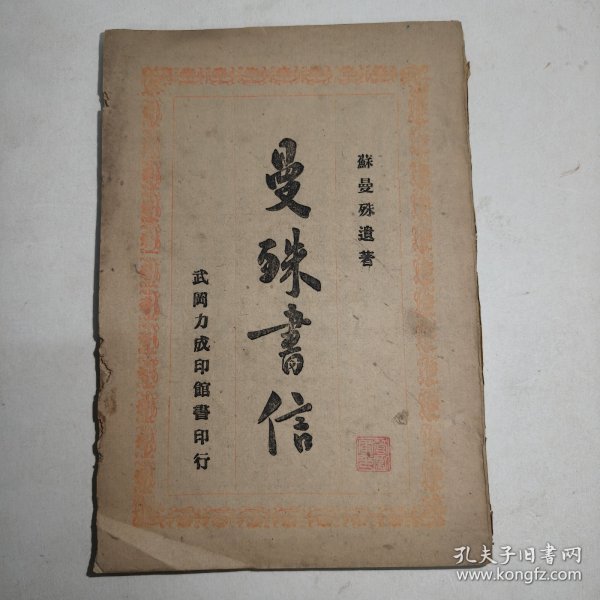 蘇曼殊遺著
曼殊書信
武岡力成印館書印行
孔夫子旧书网
www.kongfz.com